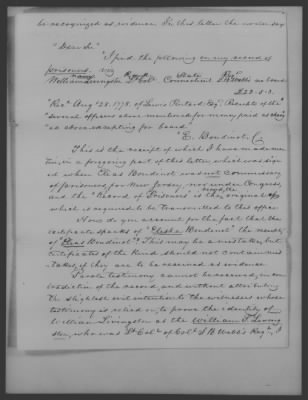 be recognized as evidence. In this letter the writer says
"Dear Sir"
"I find the following on my record of
prisoners. viz
Name Rank State Regt
William Livingston Lt Col. Connecticut S. B Webbs no bond
£23-8-3.
"Recd Aug 28. 1778. of Lewis Pintard Esqr. Receipts of the
"several officers above mentioned for money paid as
as above excepting for board"
E. Boudinot.
This is the receipt of which I have made men-
tion, in a foregoing part of this letter, which was sign
ed when Elias Boudinot was not Commissary
of prisoners for New Jersey, nor under Congress,
and the "Record of Prisoners" is the original
which is required to be transmitted to this office
How do you account for the fact that the
certificate speaks of "Elisha Boudinot" the
of "Elias Boudinot"? This may be a mistake, but
certificates of this kind should not contain mis-
takes if they are to be received as evidence.
Parole testimony cannot be received, in con-
tradiction of the record, and without attributing
the slightest evil intention to the witnesses whose
testimony is relied on, to prove the identity of
William Livingston as the William S. Living
ston, who was Lt Col. of Col. S B Webb's Regt, I